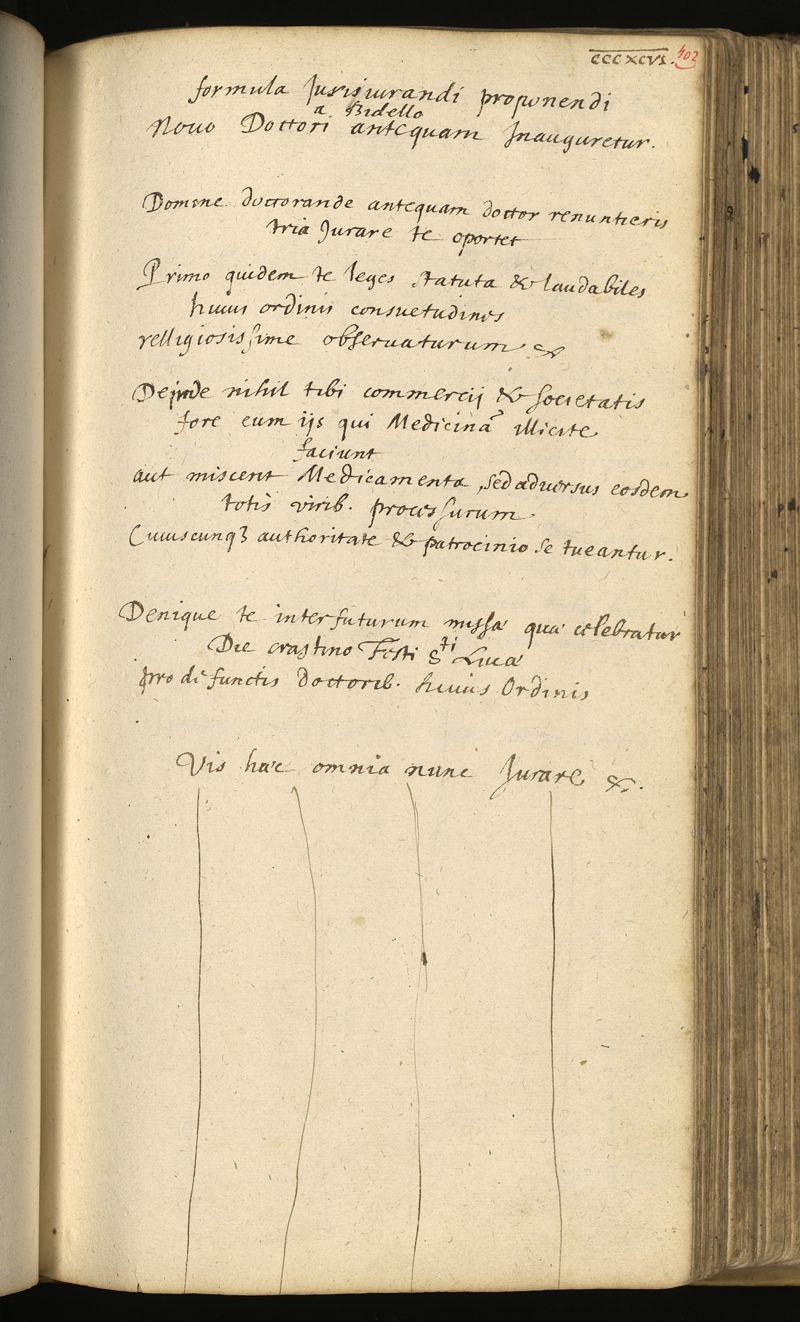 CCCXCVI. 402
formula Jurisiurandi proponendi
a Bidello
Nouo Doctori antequam Inauguretur.
Domine doctorande antequam doctor renuntieris
tria Jurare te oportet
Primo quidem te leges statuta & laudabiles
huius ordinis consuetudines
relligiosissime obseruaturum &
Deinde nihil tibi commercij & societatis
fore cum ijs qui Medicinā illicite
faciunt
aut miscent Medicamenta, sed aduersus eosdem
totis virib. processurum.
Cuiuscunqȝ authoritate & patrocinio se tueantur.
Denique te interfuturum missæ quæ celebratur
Die crastino Festi S.ti Lucæ
pro defunctis doctorib. huius Ordinis
Vis hæc omnia nunc Jurare &.